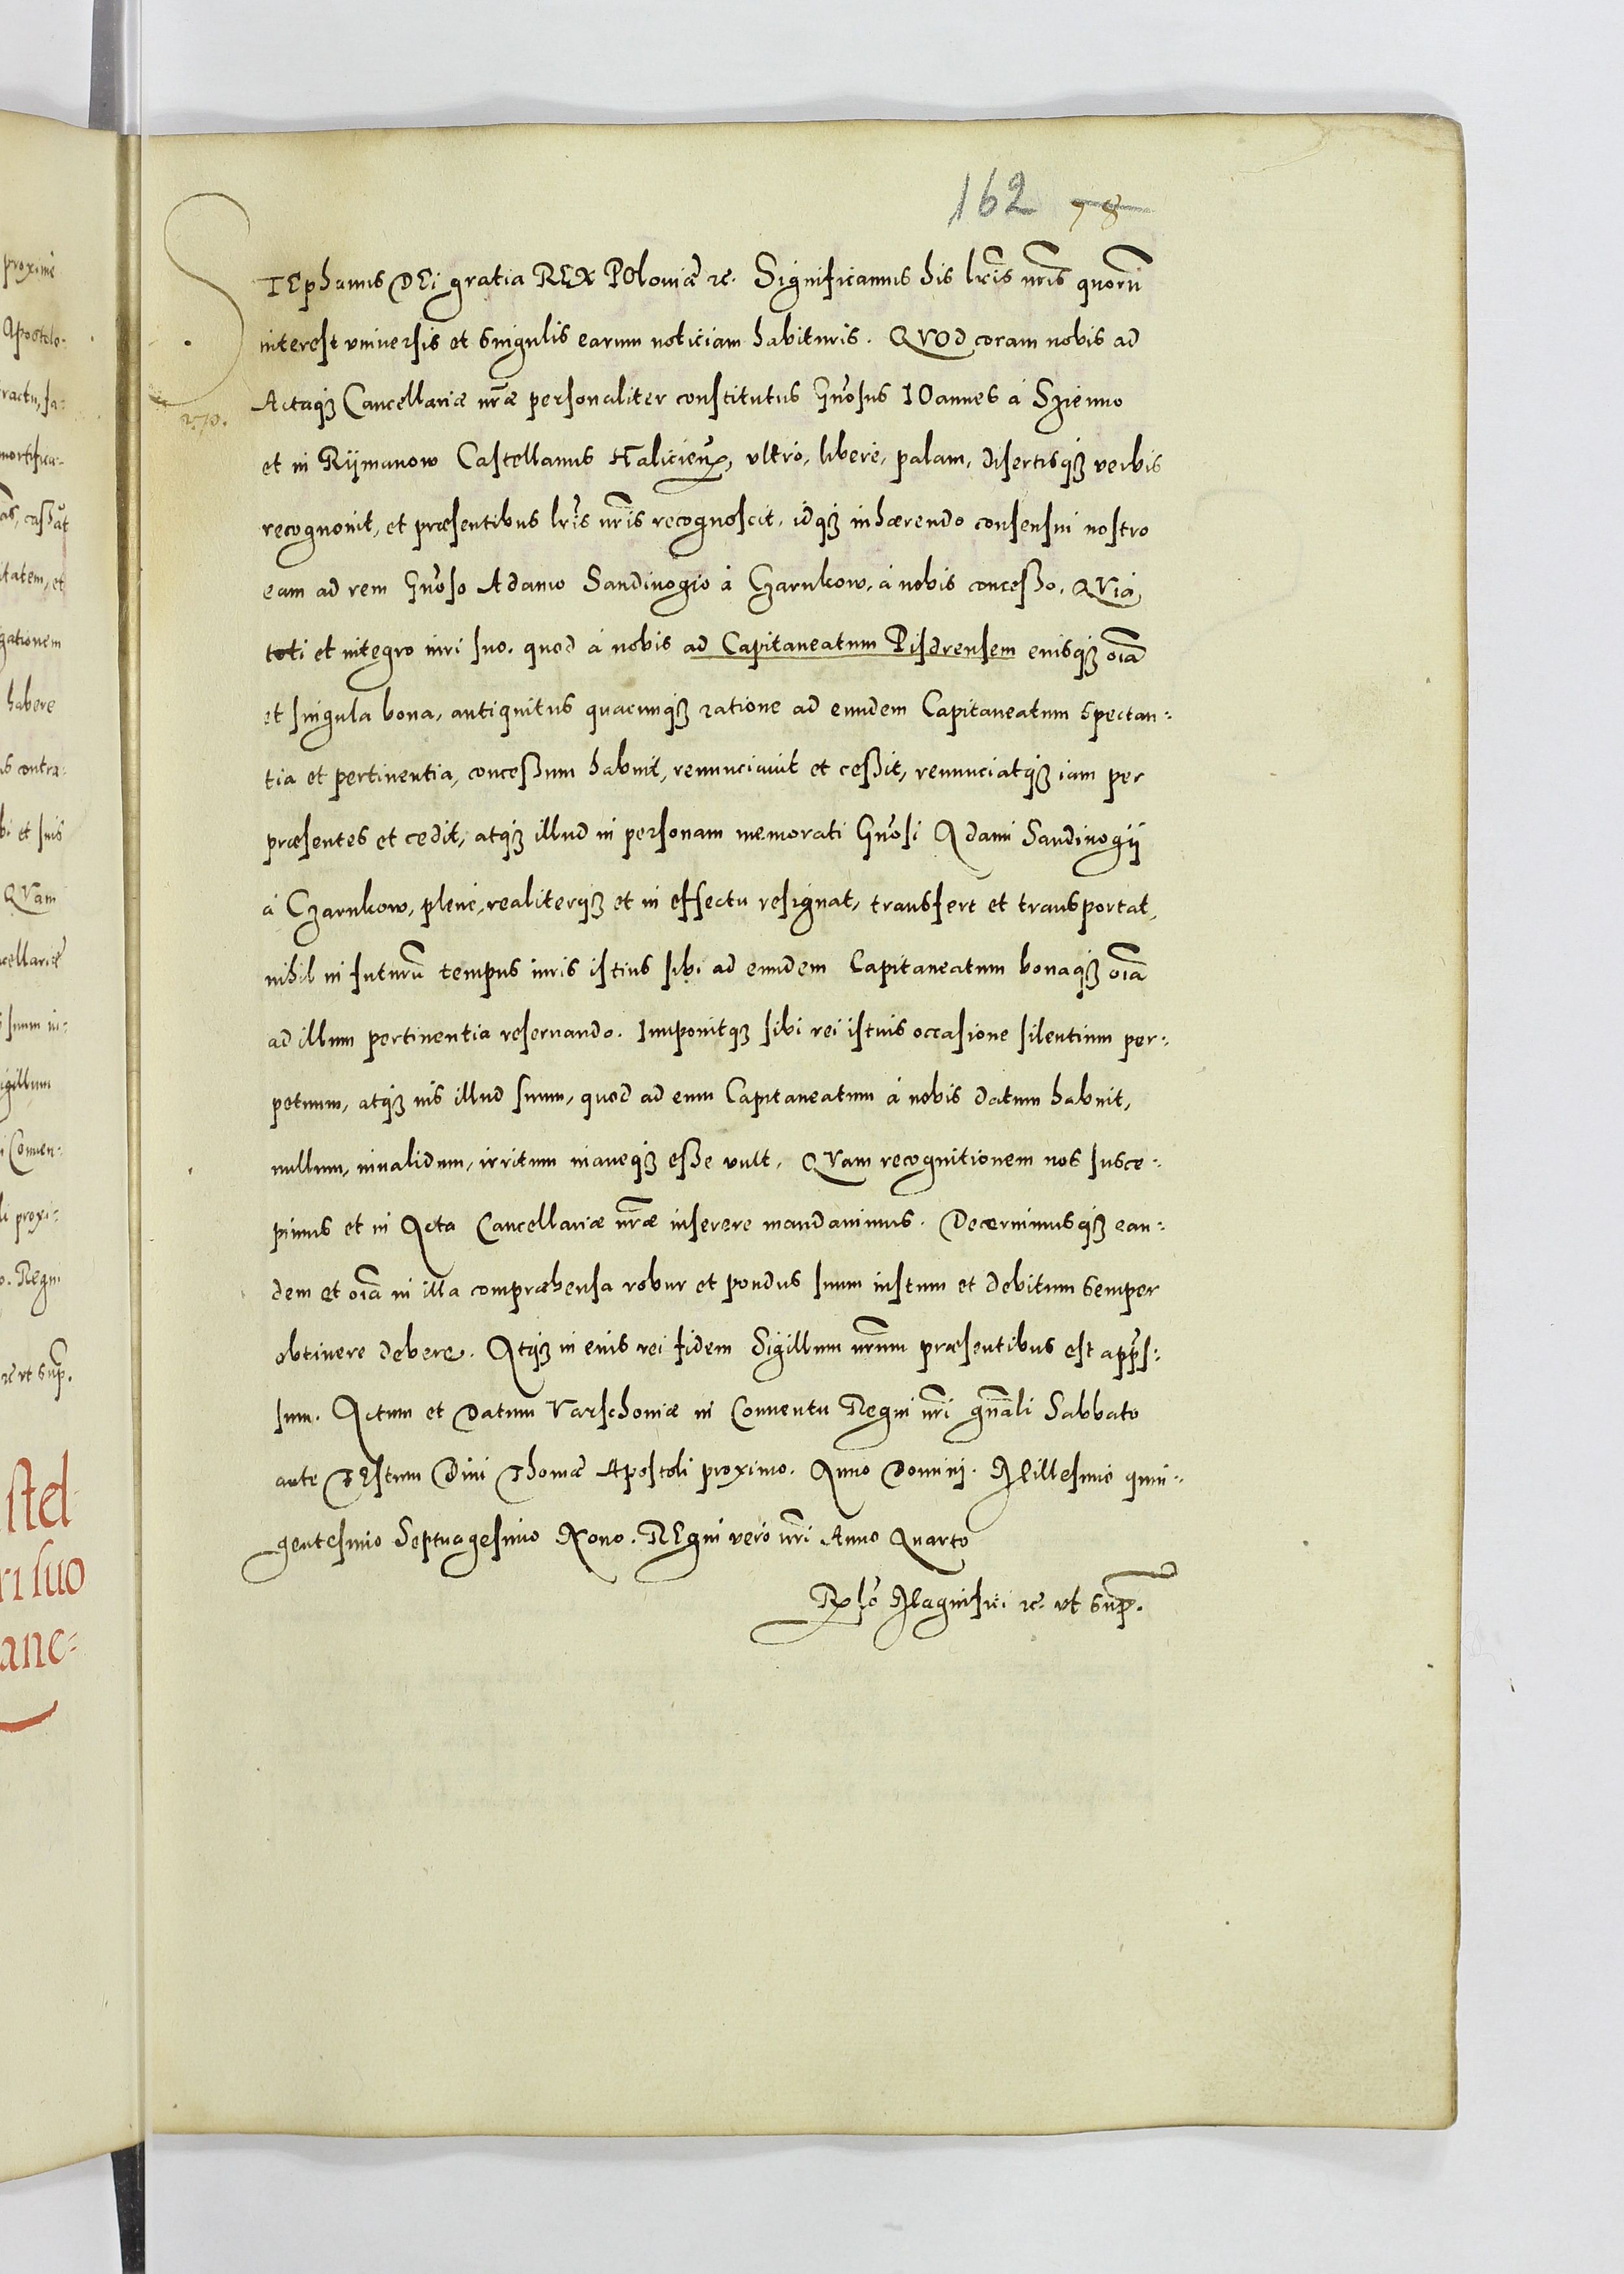 162 78
STEphanus DEi gratia REX POloniæ etc. Significamus his lr̃is nr̃is quorũ
interest vniuersis et singulis earum noticiam habituris. QVOd coram nobis ad
Actaq3 Cancellariæ nr̃æ personaliter constitutus Gñosus IOannes á Szienno
et in Rÿmanow Castellanus Halicieñ, vltró, liberé, palam, disertisq3 verbis
recognouit, et præsentibus lr̃is nr̃is recognoscit, idq3 inhærendo consensui nostro
eam ad rem Gñoso Adamo Sandiuogio á Czarnkow, á nobis concesso. QVia
toti et integro iuri suo. quod á nobis ad Capitaneatum Pisdrensem eiusq3 oĩa
et singula bona, antiquitus quacunq3 ratione ad eundem Capitaneatum spectan:
tia et pertinentia, concessum habuit, renunciauit et cessit, renunciatq3 iam per
præsentes et cedit, atq3 illud in personam memorati Gñosi Adami Sandiuogÿ
á Czarnkow, plené, realiterq3 et in effectu resignat, transfert et transportat,
nihil in futurũ tempus iuris istius sibi ad eundem Capitaneatum bonaq3 oĩa
ad illum pertinentia reseruando. Imponitq3 sibi rei istius occasione silentium per:
petuum, atq3 ius illud suum, quod ad eum Capitaneatum á nobis datum habuit,
nullum, inualidum, irritum inaneq3 esse vult. QVam recognitionem nos susce:
pimus et in Acta Cancellariæ nr̃æ inserere mandauimus. Decernimusq3 ean:
dem et oĩa in illa compræhensa robur et pondus suum iustum et debitum semper
obtinere debere. Atq3 in eius rei fidem Sigillum nr̃um præsentibus est app̃s:
sum. Actum et Datum Varschouiæ in Conuentu Regni nr̃i gñali Sabbato
ante FEstum Diui Thomæ Apostoli proximo. Anno Domini. Millesimo quin:
gentesimo Septuagesimo Nono. REgni veró nr̃i Anno Quarto
Rl̃o Magnifici etc. vt sup̃.
proximé
Apostolo:
habere
QVam
igillum
Regni
stel
ri suo
ane: